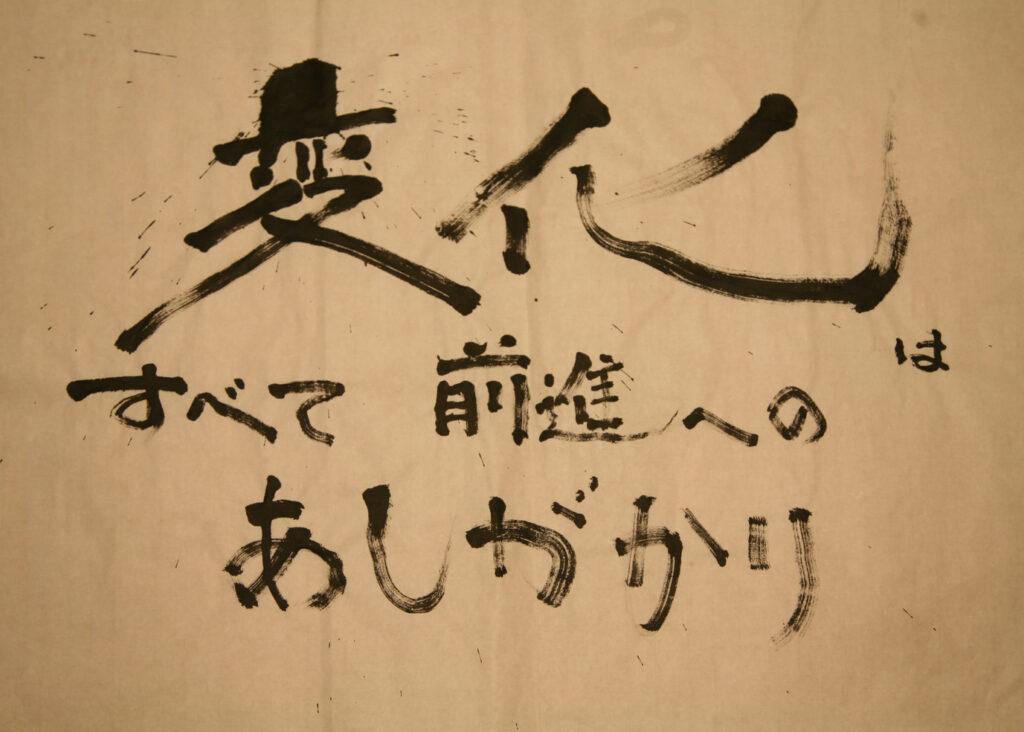 変化は
すべて 前進への
あしがかり